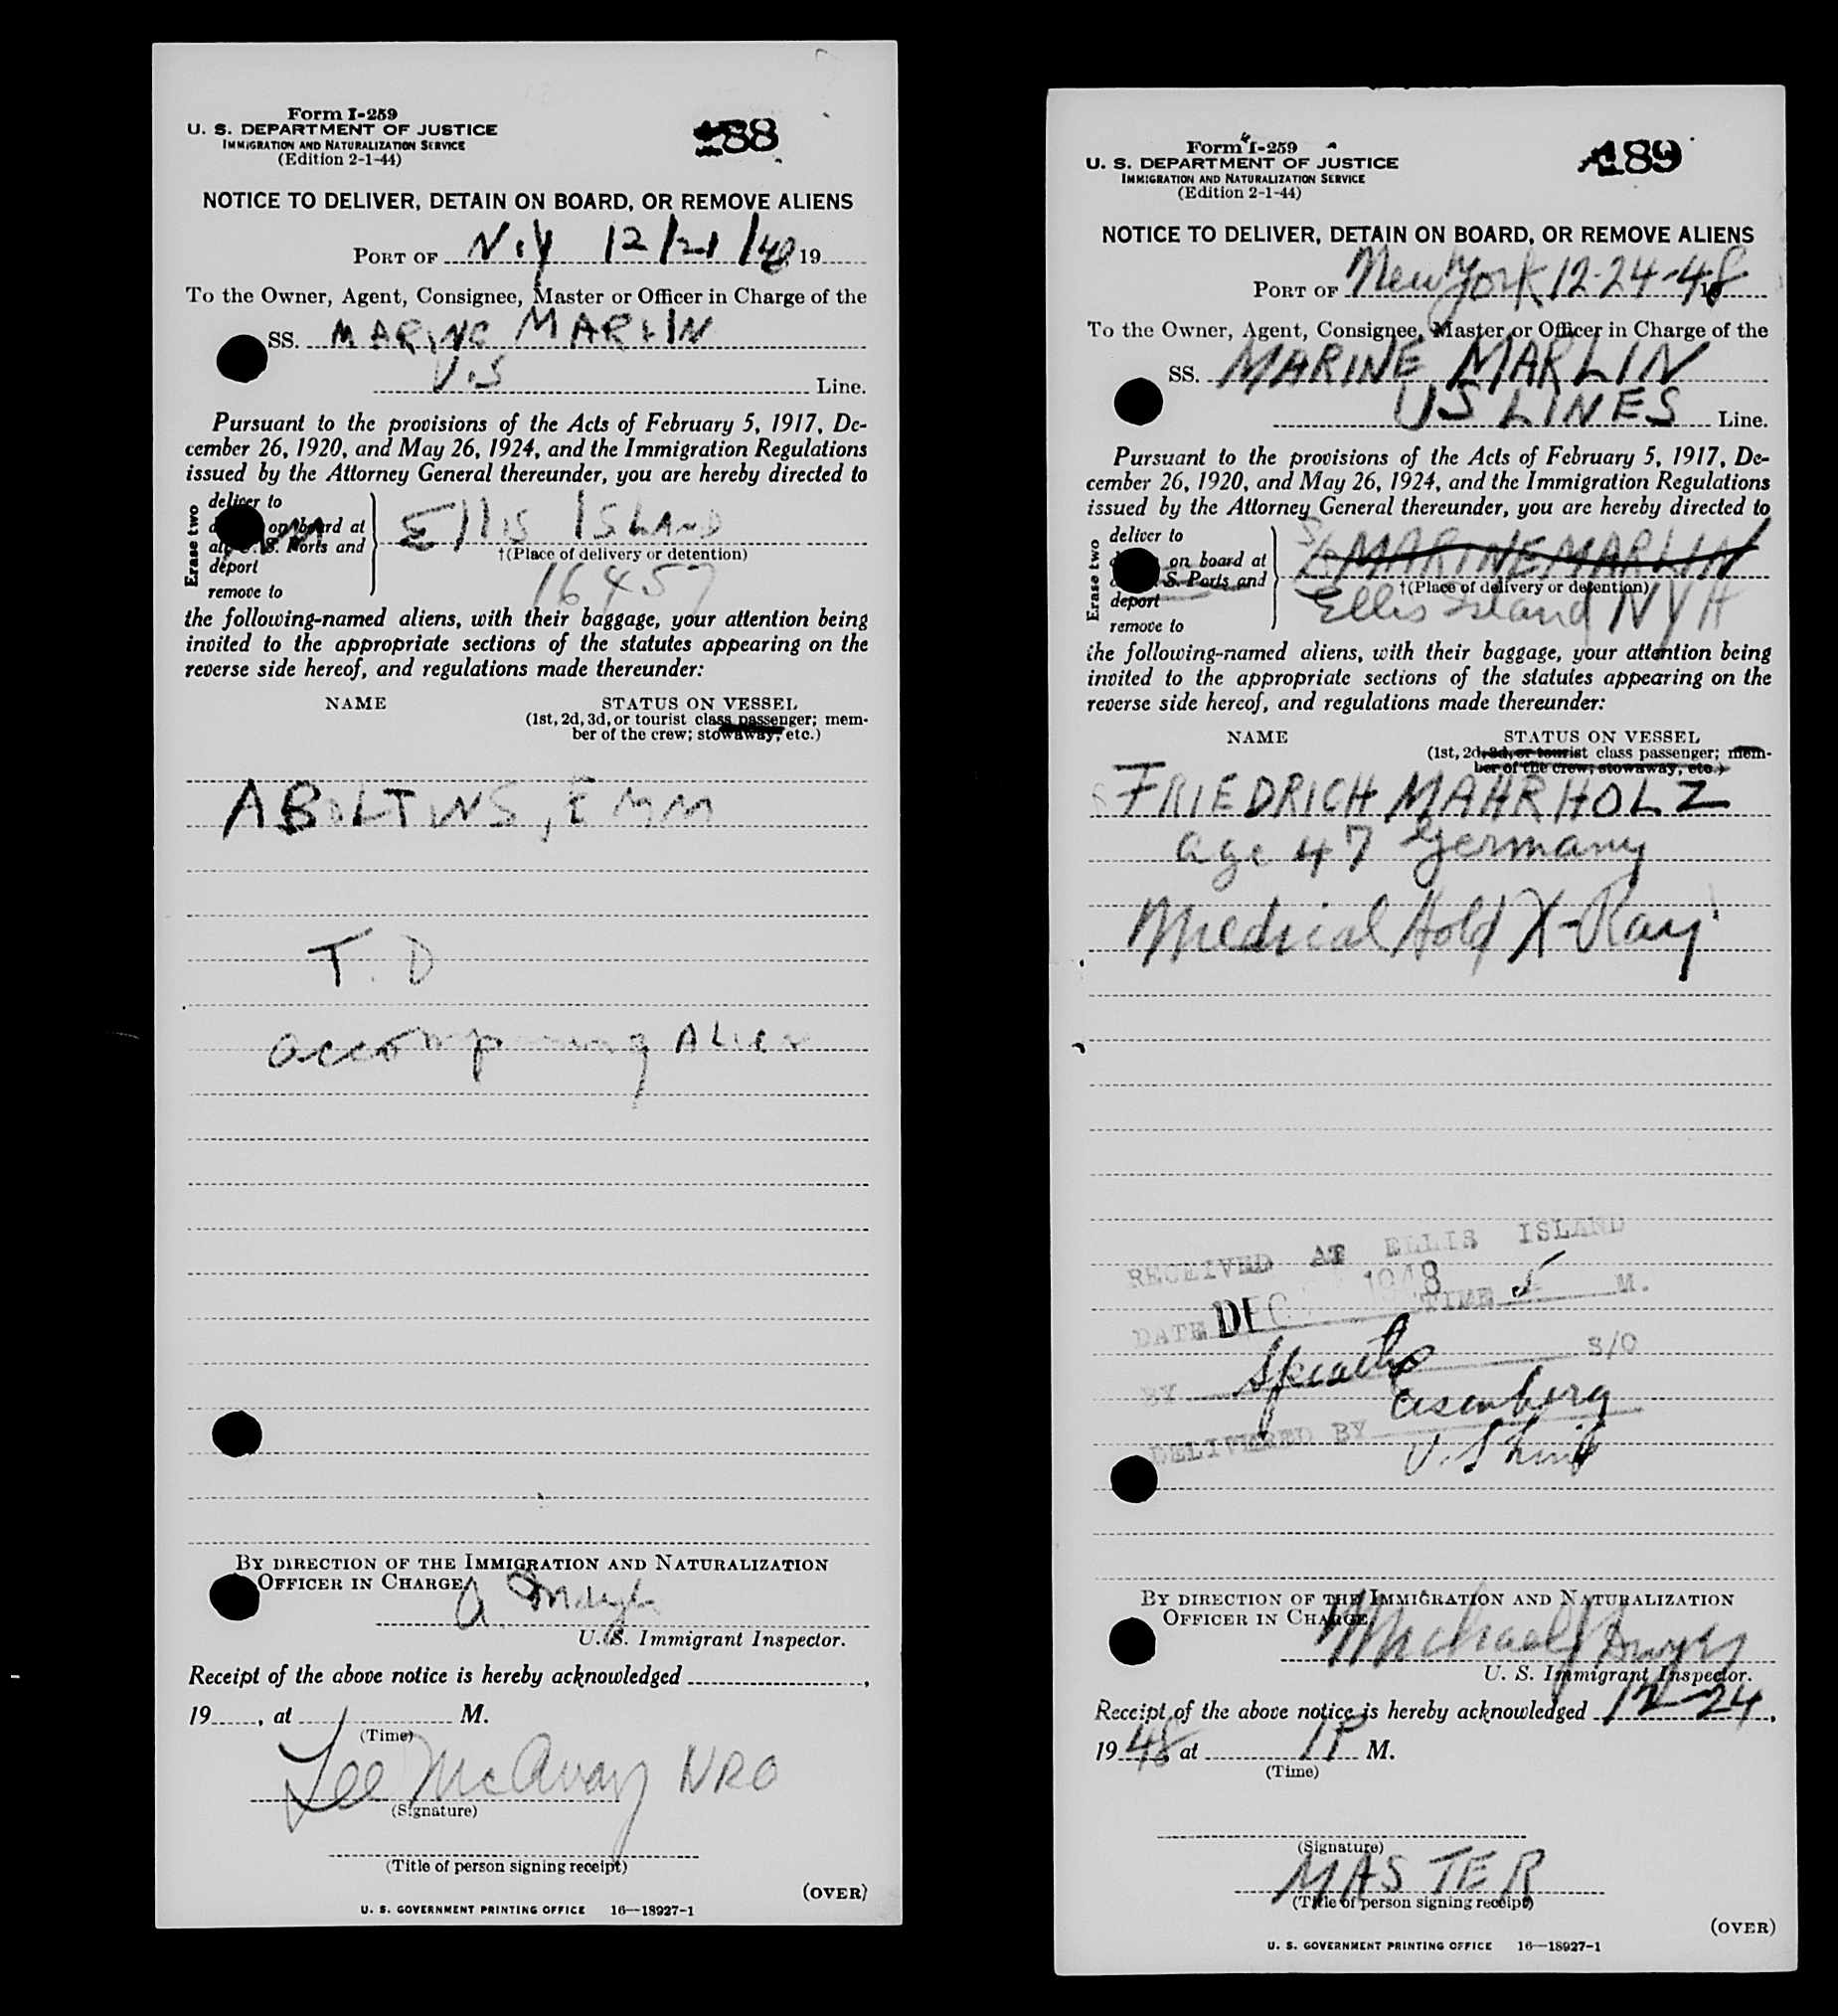 Form I-259
U. S. DEPARTMENT OF JUSTICE
IMMIGRATION AND NATURALIZATION SERVICE
(Edition 2-1-44)
188
NOTICE TO DELIVER, DETAIN ON BOARD, OR REMOVE ALIENS
PORT OF N.Y 12/21/48, 19
To the Owner, Agent, Consignee, Master or Officer in Charge of the
SS. MARINE MARLIN
U.S Line.
Pursuant to the provisions of the Acts of February 5, 1917, De-
cember 26, 1920, and May 26, 1924, and the Immigration Regulations
issued by the Attorney General thereunder, you are hereby directed to
Erase two
deliver to
on board at
S. Ports and
deport
remove to
Ellis ISLAND
†(Place of delivery or detention)
16457
the following-named aliens, with their baggage, your attention being
invited to the appropriate sections of the statutes appearing on the
reverse side hereof, and regulations made thereunder:
NAME STATUS ON VESSEL
(1st, 2d, 3d, or tourist class passenger; mem-
ber of the crew; stowaway, etc.)
ABOLTINS, EMM
T. D
accompaning ALien
BY DIRECTION OF THE IMMIGRATION AND NATURALIZATION
OFFICER IN CHARGE.
A
U. S. Immigrant Inspector.
Receipt of the above notice is hereby acknowledged ,
19 , at M.
(Time)
Lee McAvay NRO
(Signature)
(Title of person signing receipt)
(OVER)
U. S. GOVERNMENT PRINTING OFFICE 16—18927-1
Form I-259
U. S. DEPARTMENT OF JUSTICE
IMMIGRATION AND NATURALIZATION SERVICE
(Edition 2-1-44)
189
NOTICE TO DELIVER, DETAIN ON BOARD, OR REMOVE ALIENS
PORT OF New York 12-24-48
To the Owner, Agent, Consignee, Master or Officer in Charge of the
SS. MARINE MARLIN
US LINES Line.
Pursuant to the provisions of the Acts of February 5, 1917, De-
cember 26, 1920, and May 26, 1924, and the Immigration Regulations
issued by the Attorney General thereunder, you are hereby directed to
Erase two
deliver to
on board at
S. Ports and
deport
remove to
MARINE MARLIN
†(Place of delivery or detention)
Ellis Island NYH
the following-named aliens, with their baggage, your attention being
invited to the appropriate sections of the statutes appearing on the
reverse side hereof, and regulations made thereunder:
NAME STATUS ON VESSEL
(1st, 2d, 3d, or tourist class passenger; mem-
ber of the crew; stowaway, etc.)
FRIEDRICH MAHRHOLZ
age 47 Germany
Medical Hold X-Ray
RECEIVED AT ELLIS ISLAND
DATE DEC 1948 TIME 5 M.
BY S/O
Eisenberg
DELIVERED BY
U. S Line
BY DIRECTION OF THE IMMIGRATION AND NATURALIZATION
OFFICER IN CHARGE.
Michael J Dwyer
U. S. Immigrant Inspector.
Receipt of the above notice is hereby acknowledged 12-24,
19 48, at 1P M.
(Time)
(Signature)
MASTER
(Title of person signing receipt)
(OVER)
U. S. GOVERNMENT PRINTING OFFICE 16—18927-1